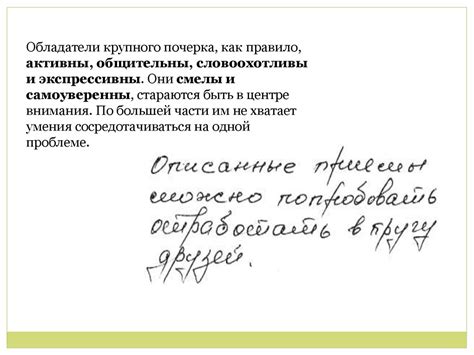 Обладатели крупного почерка, как правило,
активны, общительны, словоохотливы
и экспрессивны. Они смелы и
самоуверенны, стараются быть в центре
внимания. По большей части им не хватает
умения сосредотачиваться на одной
проблеме.
Описанные приемы
можно попробовать
отработать в кругу
друзей.